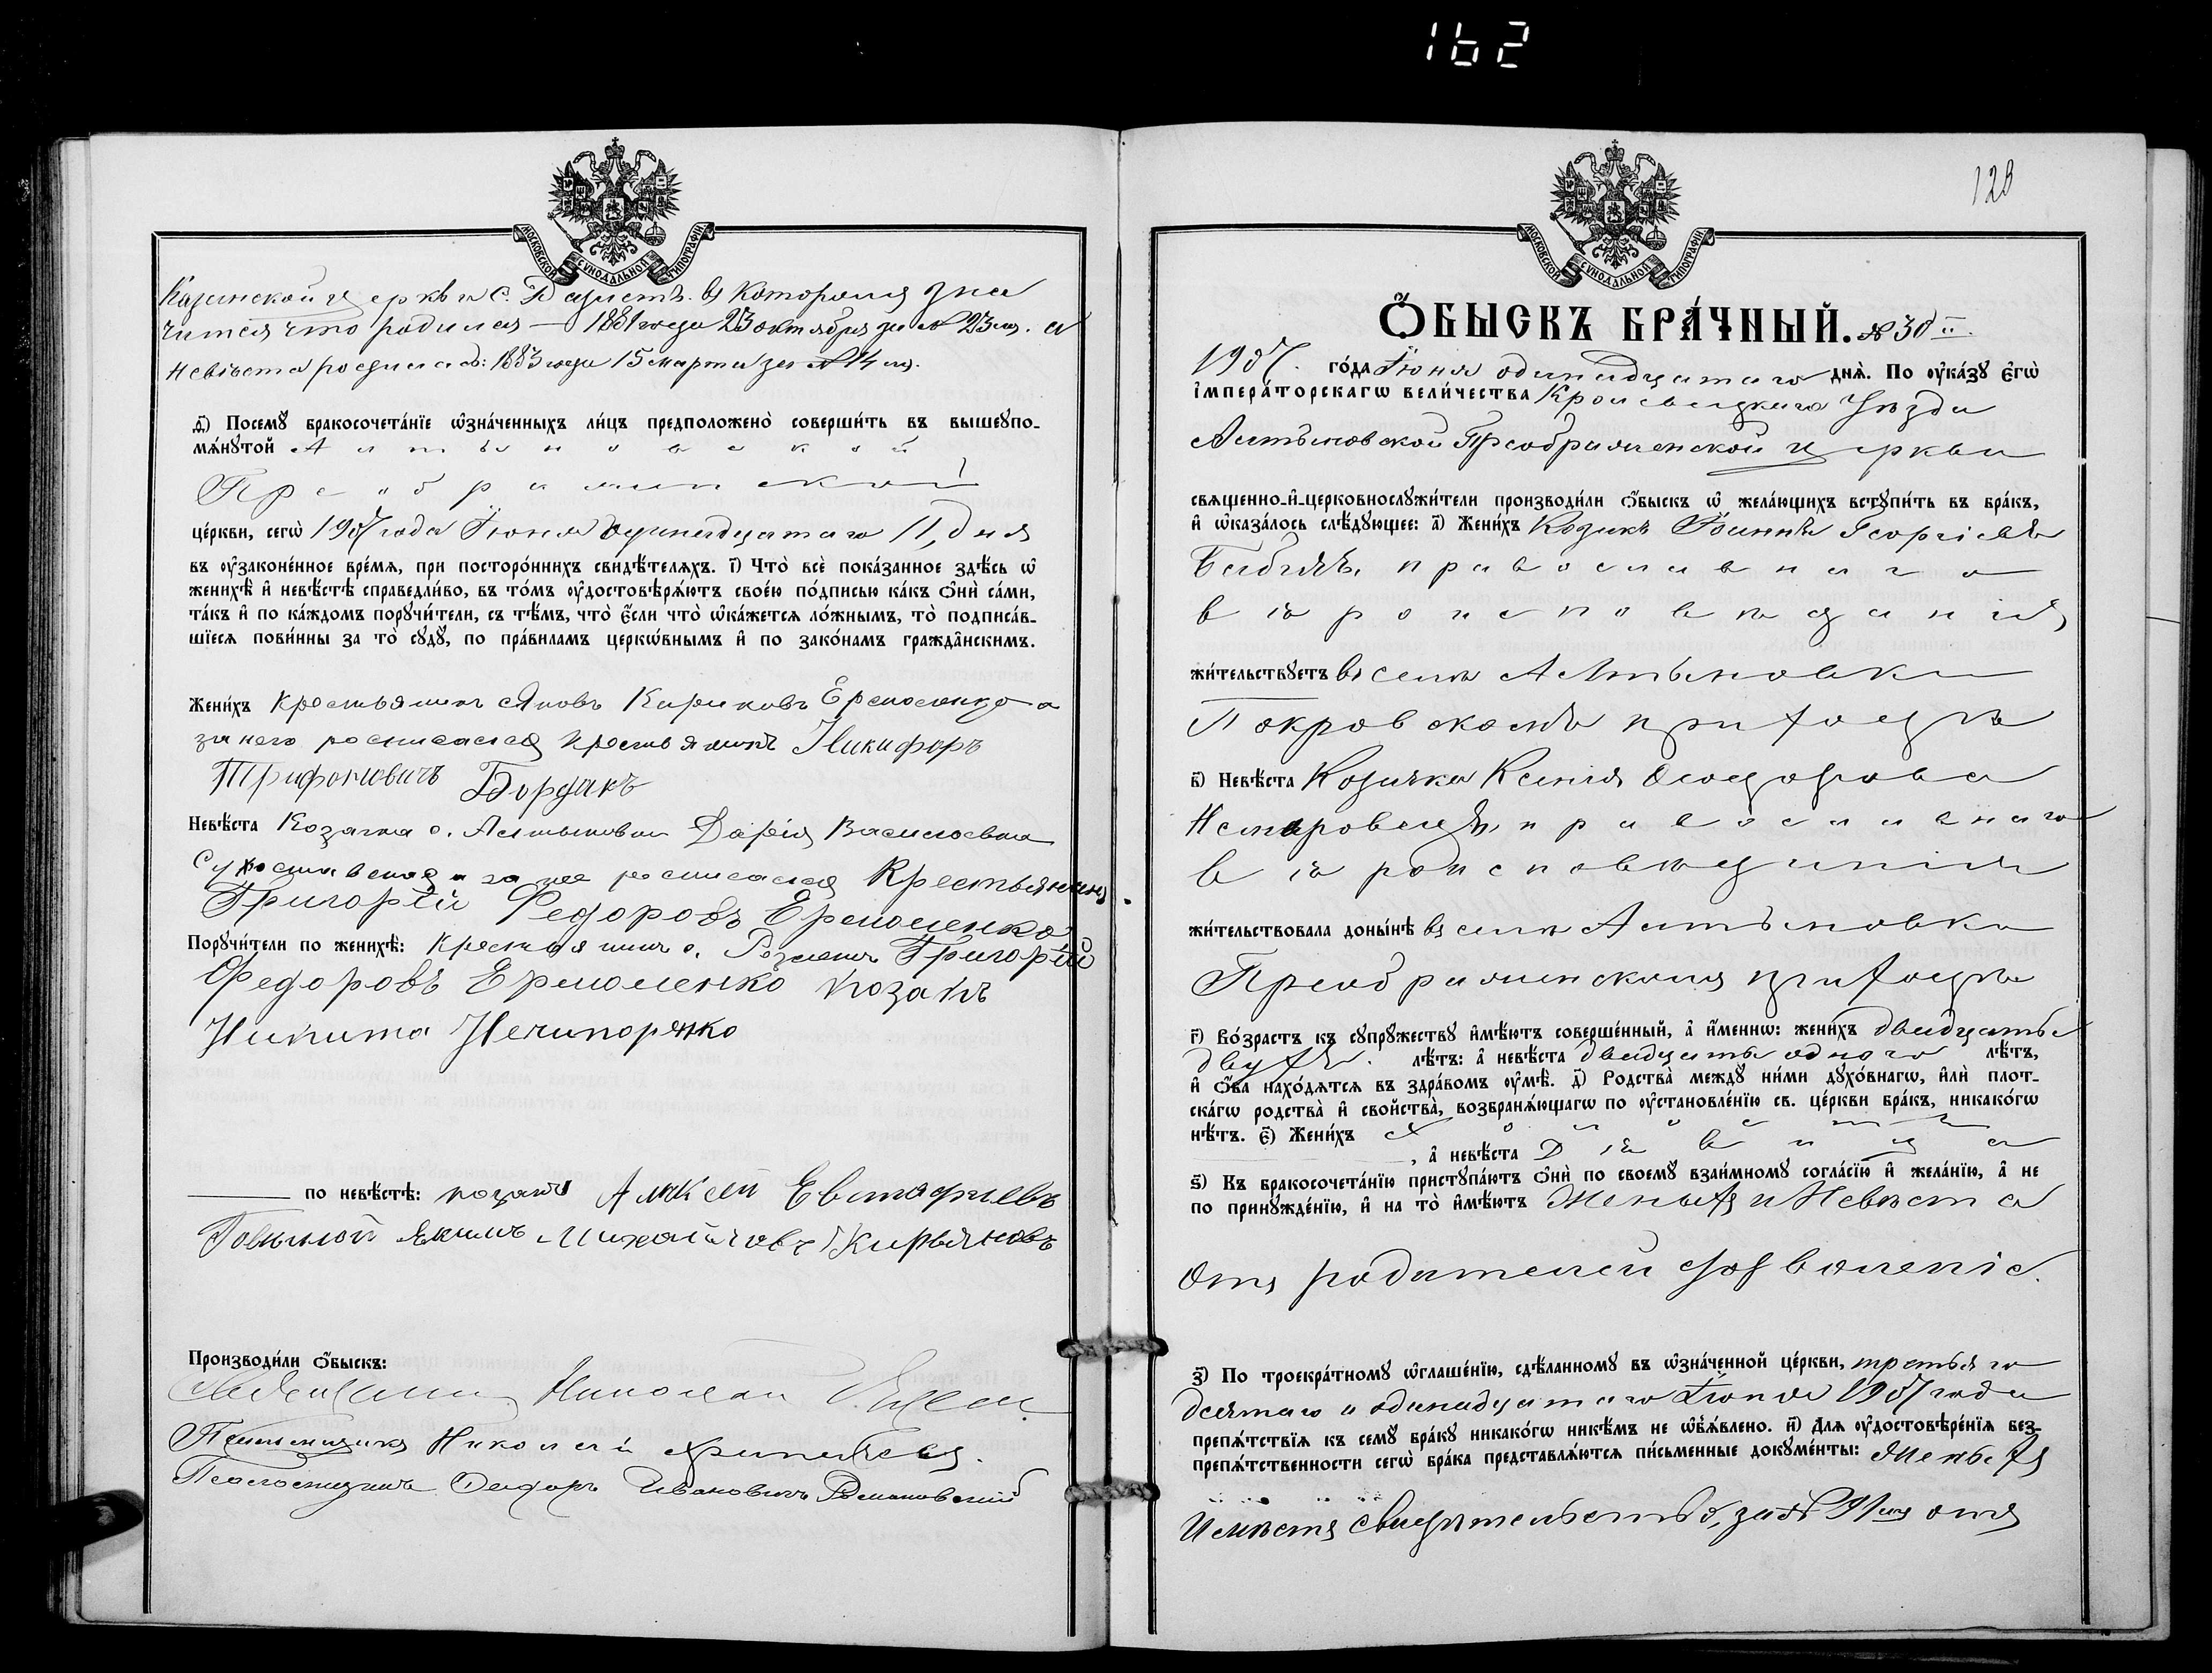 162
128
МОСКОВСКОЙ СѴНОДАЛЬНОЙ ТИПОГРАФІИ
церкви с. въ которомъ зна
чится что родился — 1881 года 23 октября за № 23 м. а
невѣста родилась: 1883 года 15 марта за № 14 м.
д҃) Посемꙋ̀ бракосочета́нїе ѡ҆зна́ченныхъ ли́цъ предположено̀ соверши́ть въ вышеꙋпо-
мѧ́нꙋтой Алтыновской
Преображенской
це́ркви, сегѡ̀ 1907 года Іюня одинадцатаго 11, дня
въ ᲂу҆зако́ненное вре́мѧ, при посторо́ннихъ свидѣ́телѧхъ. і҃) Что̀ всѐ пока́занное здѣ́сь ѡ҆
женихѣ̀ и҆ невѣ́стѣ справедли́во, въ то́мъ ᲂу҆достовѣрѧ́ютъ свое́ю по́дписью ка́къ ѻ҆нѝ са́ми,
та́къ и҆ по ка́ждомъ порꙋчи́тели, съ тѣ́мъ, что̀ є҆́сли что̀ ѡ҆ка́жетсѧ ло́жнымъ, то̀ подписа́в-
шїесѧ пови́нны за то̀ сꙋдꙋ̀, по пра́виламъ церкѡ́внымъ и҆ по зако́намъ гражда́нскимъ.
Жени́хъ крестьянинъ Яковъ Кириковъ Ермоленко а
за него росписался крестьянинъ Никифоръ
Трифоновичъ Бордакъ
Невѣ́ста Козачка с. Алтыновки Дарія Васильевна
а за нее росписался Крестьянинъ
Григорій Федоровъ Ермоленко
Порꙋчи́тели по женихѣ̀: крестьянинъ с. Григорій
Федоровъ Ермоленко козакъ
Никита Нечипоренко
по невѣ́стѣ: козакъ Алексей Евстафиевъ
Екимъ Михайловъ Кирьяновъ
Производи́ли ѻ҆́быскъ:
Священникъ Николай
Псаломщикъ Николай
Псаломщикъ Федоръ Ивановичъ Романовский
МОСКОВСКОЙ СѴНОДАЛЬНОЙ ТИПОГРАФІИ
Ѻ҆́БЫСКЪ БРА́ЧНЫЙ. № 30
1907. го́да Іюня одинадцатаго днѧ̀. По ᲂу҆ка́зꙋ є҆гѡ̀
і҆мпера́торскагѡ вели́чества Кролевецкаго Уѣзда
Алтыновской Преображенской церкви
свѧщенно-и҆-церковнослꙋжи́тели производи́ли ѻ҆́быскъ ѡ҆ жела́ющихъ встꙋпи́ть въ бра́къ,
и҆ ѡ҆каза́лось слѣ́дꙋющее: а҃) Жени́хъ Козакъ Іоаннъ Георгіевъ
Бабякъ, православнаго
вѣроисповѣданія
жи́тельствꙋетъ въ селѣ Алтыновки
Покровскомъ приходѣ
в҃) Невѣ́ста Козачка Ксенія Ѳеодорова
православнаго
вѣроисповѣданія
жи́тельствовала доны́нѣ въ селѣ Алтыновки
Преображенскомъ приходѣ
г҃) Во́зрастъ къ сꙋпрꙋ́жествꙋ и҆мѣ́ютъ соверше́нный, а҆̀ и҆́меннѡ: жени́хъ двадцать
двухъ. лѣ́тъ: а҆̀ невѣ́ста двадцать одного лѣ́тъ,
и҆ ѻ҆́ба нахо́дѧтсѧ въ здра́вомъ ᲂу҆мѣ̀. д҃) Родства̀ междꙋ̀ ни́ми дꙋхо́внагѡ, и҆лѝ плот-
ска́гѡ родства̀ и҆ свойства̀, возбранѧ́ющагѡ по ᲂу҆становле́нїю св. це́ркви бра́къ, никако́гѡ
нѣ́тъ. є҃) Жени́хъ холостъ
, а҆̀ невѣ́ста дѣвица
ѕ҃) Къ бракосочета́нїю пристꙋпа́ютъ ѻ҆нѝ по своемꙋ̀ взаи́мномꙋ согла́сїю и҆ жела́нїю, а҆̀ не
по принꙋжде́нїю, и҆ на то̀ и҆мѣ́ютъ Женихъ и Невѣста
отъ родителей дозволеніе.
з҃) По троекра́тномꙋ ѡ҆глаше́нїю, сдѣ́ланномꙋ въ ѡ҆зна́ченной це́ркви, третьяго
десятаго и одинадцатаго Іюня 1907 года
препѧ́тствїѧ къ семꙋ̀ бра́кꙋ никако́гѡ никѣ́мъ не ѡ҆б̾ѧ́влено. и҃) Длѧ ᲂу҆достовѣре́нїѧ без-
препѧ́тственности сегѡ̀ бра́ка представлѧ́ютсѧ пи́сьменные докꙋме́нты: Женихъ
имѣетъ свидѣтельство, за № отъ